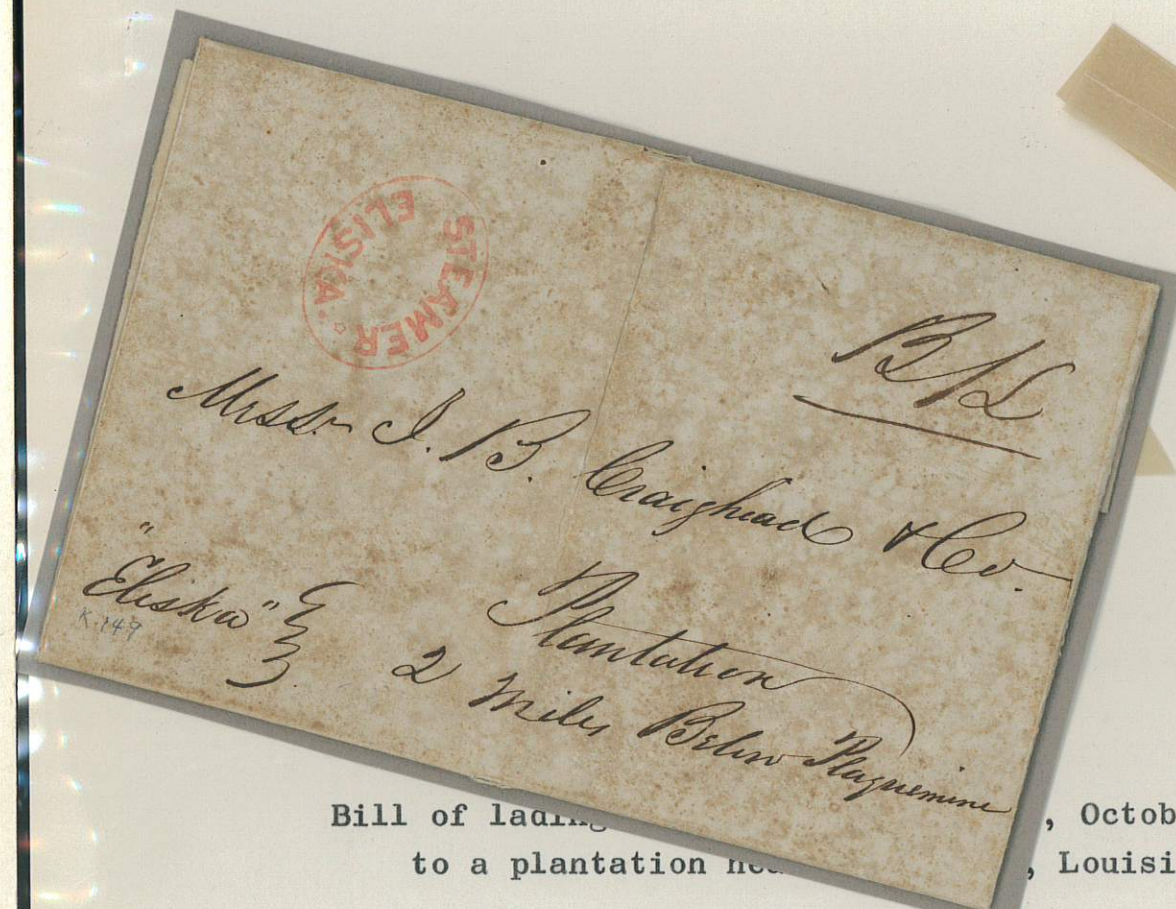 STEAMER
ELISKA.
B/L
Messr. J. B. Craighead & Co.
Plantation
2 Miles Below Plaquemine
"Eliska"
K.149
Bill of lading , Octob
to a plantation , Louisi